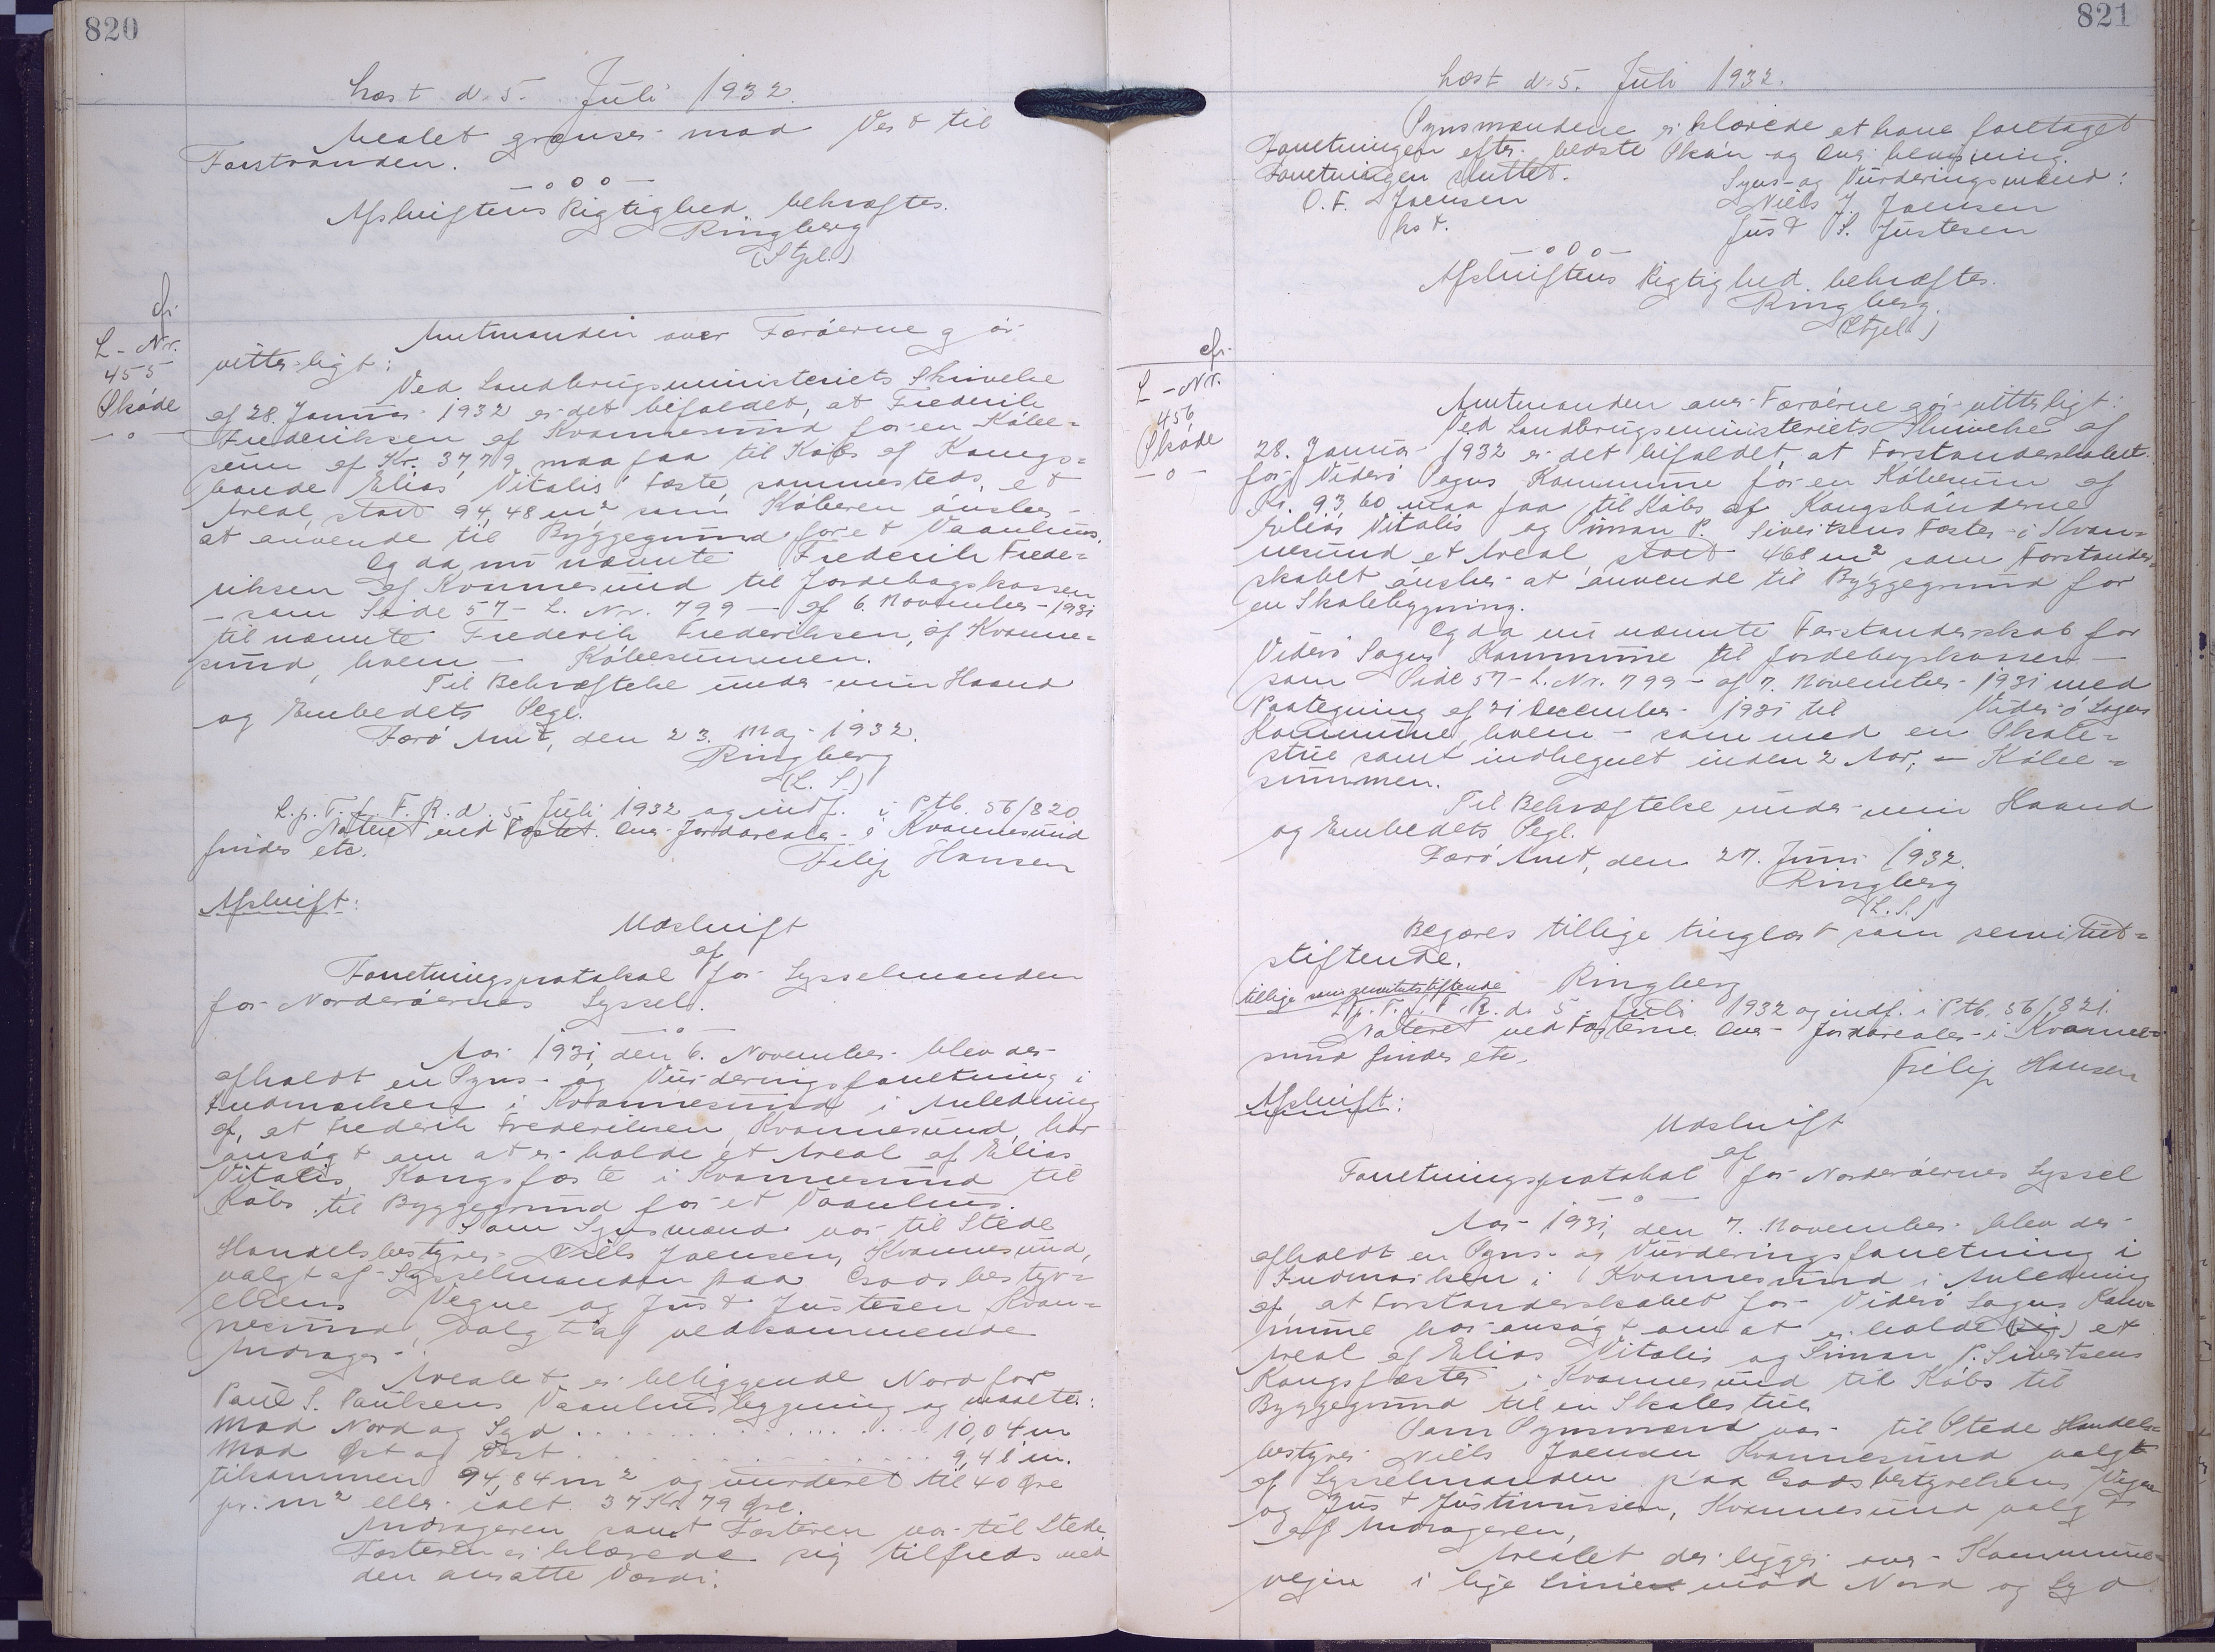 820
Læst d. 5. Juli 1932.
Arealet grænser mod Vest til
Forstranden.
—o0o—
Afskriftens Rigtighed bekræftes.
Ringberg
(Stpl.)
cfr.
L-Nr.
455
Skøde
—o—
Amtmanden over Færøerne gør
vitterligt:
Ved Landbrugsministeriets Skrivelse
af 28. Januar 1932 er det bifaldet, at Frederik
Frederiksen af Kvannesund for en Købe=
sum af Kr. 37,79 maa faa til Købs af Kongs=
bonde Elias Vitalis' Fæste sammesteds, et
Areal, stort 94,48 m² som Køberen ønsker
at anvende til Byggegrund for et Vaanhus.
Og da nu nævnte Frederik Frede=
riksen af Kvannesund til Jordebogskassen
- som Side 57 - L. Nr. 799 - af 6. November - 1931
til nævnte Frederik Frederiksen, af Kvanne=
sund, hvem - Købesummen.
Til Bekræftelse under min Haand
og Embedets Segl.
Færø Amt, den 23. Maj 1932.
Ringberg
(L. S.)
L. p. T. f. F. R. d. 5. Juli 1932 og indf. i Ptb. 56/820
Noteret ved Fæstet. Over Jordarealer i Kvannesund
findes etc.
Filip Hansen
Afskrift:
Udskrift
af
Forretningsprotokol for Sysselmanden
for Norderøernes Syssel.
—o—
Aar 1931, den 6. November blev der
afholdt en Syns- og Vurderingsforretning i
Indmarken i Kvannesund i Anledning
af, at Frederik Frederiksen, Kvannesund, har
ansøgt om at erholde et Areal af Elias
Vitalis Kongsfæste i Kvannesund til
Købs til Byggegrund for et Vaanhus.
Som Synsmænd var til Stede
Handelsbestyrer Niels Joensen, Kvannesund,
valgt af Sysselmanden paa Godsbestyr=
elsens Vegne og Just Justesen Kvan=
nesund, valgt af vedkommende
Andrager.
Arealet er beliggende Nord for
Paul S. Paulsens Vaanhusbygning og maalte:
Mod Nord og Syd . . . . . . . . . . 10,04 m
Mod Øst og Vest . . . . . . . . . . 9,41 m.
tilsammen 94,84 m² og vurderet til 40 Øre
pr. m² eller ialt 37 Kr. 79 Øre.
Andrageren samt Fæsteren var til Stede.
Fæsteren erklærede sig tilfreds med
den ansatte Værdi.
821
Læst d. 5. Juli 1932.
Synsmændene erklærede at have foretaget
Forretningen efter bedste Skøn og Overbevisning.
Forretningen sluttet.
Syns- og Vurderingsmænd:
O. F. Joensen
Niels J. Joensen
kst.
Just S. Justesen
—o0o—
Afskriftens Rigtighed bekræftes.
Ringberg.
(Stpl.)
cfr.
L-Nr.
456
Skøde
—o—
Amtmanden over Færøerne gør vitterligt:
Ved Landbrugsministeriets Skrivelse af
28. Januar 1932 er det bifaldet, at Forstanderskabet
for Viderø Sogns Kommune for en Købesum af
Kr. 93,60 maa faa til Købs af Kongsbønderne
Elias Vitalis og Simon P. Sivertsens Fæster i Kvan=
nesund et Areal, stort 468 m² som Forstander=
skabet ønsker at anvende til Byggegrund for
en Skolebygning.
Og da nu nævnte Forstanderskab for
Viderø Sogns Kommune til Jordebogskassen -
som Side 57 - L. Nr. 799 - af 7. November - 1931 med
Paategning af 21 December 1931 til Viderø Sogns
Kommune, hvem - som med en Skole=
stue samt indhegnet inden 2 Aar, - Købe=
summen.
Til Bekræftelse under min Haand
og Embedets Segl.
Færø Amt, den 27. Juni 1932.
Ringberg
(L. S.)
Begæres tillige tinglæst som servitut=
stiftende.
Ringberg
tillige som servitutstiftende
L. p. T. f. F. R. d. 5. Juli 1932 og indf. i Ptb. 56/821.
Noteret ved Fæsterne. Over Jordarealer i Kvanne=
sund findes etc.
Filip Hansen
Afskrift:
Udskrift
af
Forretningsprotokol for Norderøernes Syssel
—o—
Aar 1931, den 7. November blev der
afholdt en Syns- og Vurderingsforretning i
Indmarken i Kvannesund i Anledning
af, at Forstanderskabet for Viderø Sogns Kom=
mune har ansøgt om at erholde et
Areal af Elias Vitalis og Simon P. Sivertsens
Kongsfæster i Kvannesund til Købs til
Byggegrund til en Skolestue
Som Synsmænd var til Stede Handels=
bestyrer Niels Joensen Kvannesund valgt
af Sysselmanden paa Godsbestyrelsens Vegne
og Just Justinussen, Kvannesund valgt
af Andrageren,
Arealet der ligger over Kommune=
vejen i lige Linie mod Nord og Syd